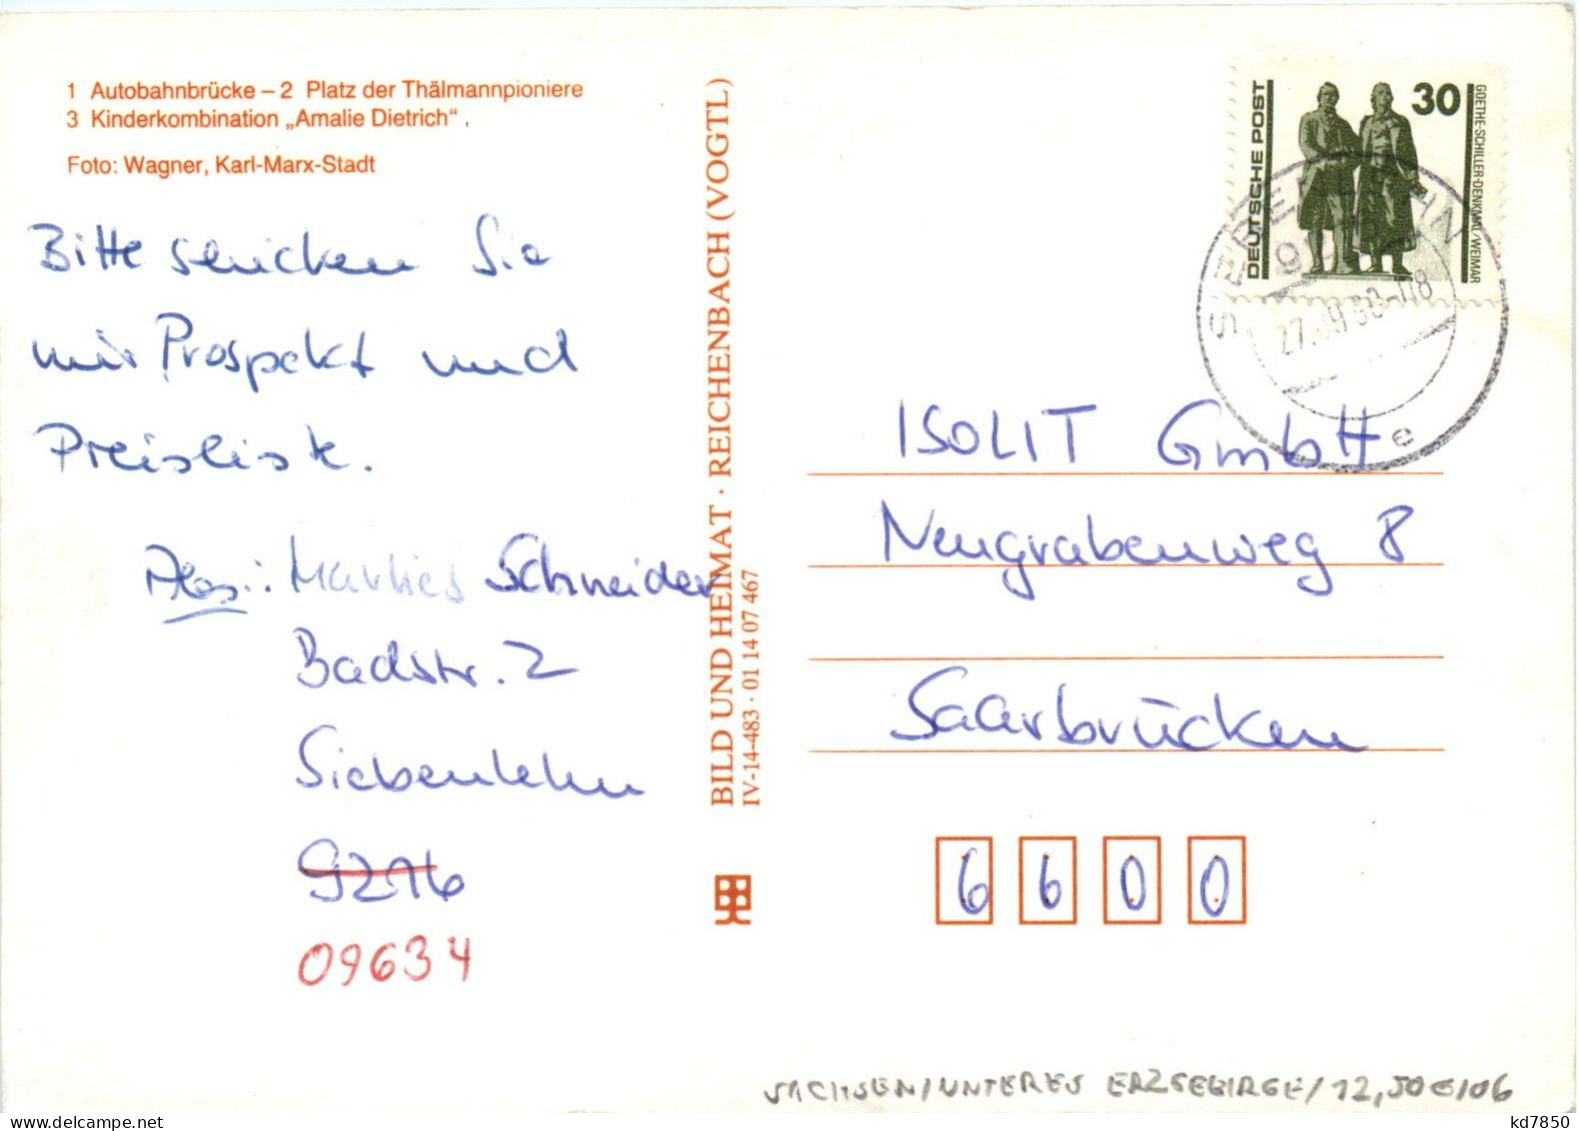 1 Autobahnbrücke – 2 Platz der Thälmannpioniere
3 Kinderkombination „Amalie Dietrich“.
Foto: Wagner, Karl-Marx-Stadt
Bitte schicken Sie
mir Prospekt und
Preisliste.
Marlies Schneider
Badstr. 2
Siebenlehn
9216
09634
BILD UND HEIMAT · REICHENBACH (VOGTL)
IV-14-483 · 01 14 07 467
DEUTSCHE POST
30
GOETHE-SCHILLER-DENKMAL/WEIMAR
SIEBENLEHN
27.09.90-18
e
ISOLIT GmbH
Neugrabenweg 8
Saarbrücken
6600
SACHSEN/UNTERES ERZGEBIRGE/12,50€/06
kd7850